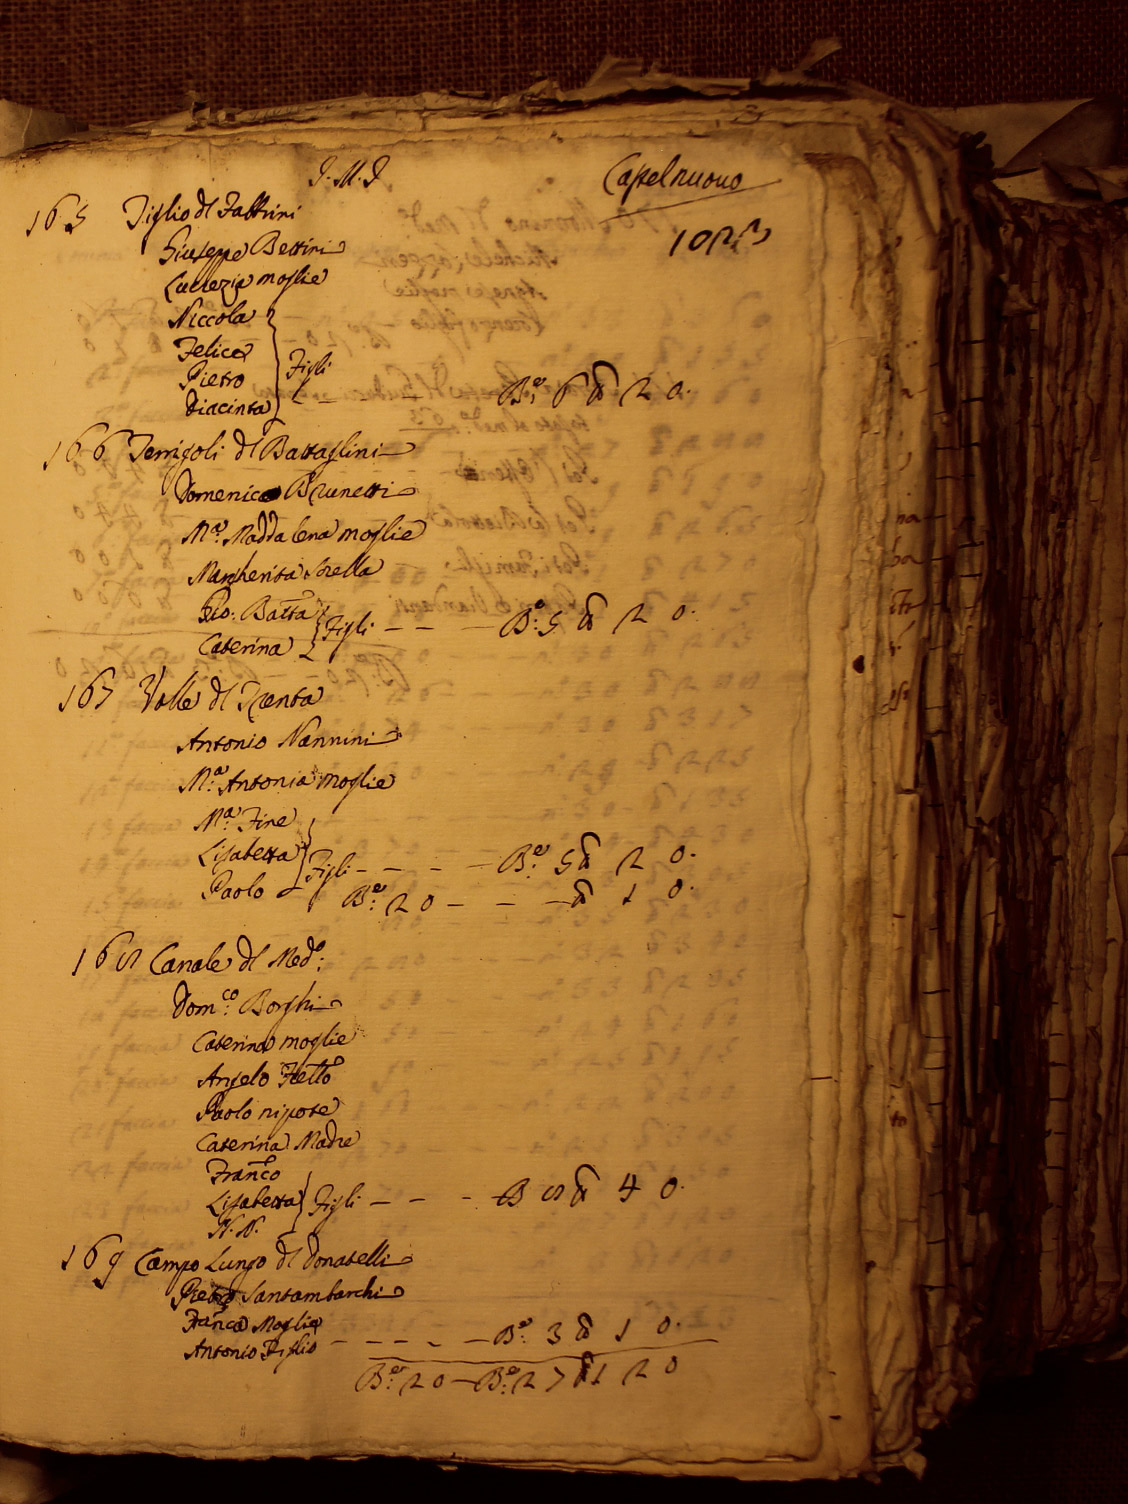 J. M. J
Castelnuovo
165 Tiglio di Fattrini
Giuseppe Bettini
Lucrezia moglie
Niccola
Felice
Pietro
Diacinta
Figli — — B.e 6 20.
166 Terrigoli di Battaglini
Domenico Brunetti
M.a Maddalena moglie
Margherita Sorella
Gio: Batta
Caterina
Figli — — — B.e 5 20.
167 Valle di
Antonio Nannini
M.a Antonia moglie
M.a Fine
Lisabetta
Paolo
Figli — — — — B.e 5 20.
B.e 20 — — — 10.
168 Canale di Med.o
Dom.co Borghi
Caterina moglie
Angelo Frello
Paolo nipote
Caterina Madre
Franco
Lisabetta
N. N.
Figli — — — B 8 40.
169 Campo Lungo di Donatelli
Pietro Santambarchi
Franca Moglie
Antonio Figlio — — — — B.e 3 10.
B.e 20 — B.e 27 120